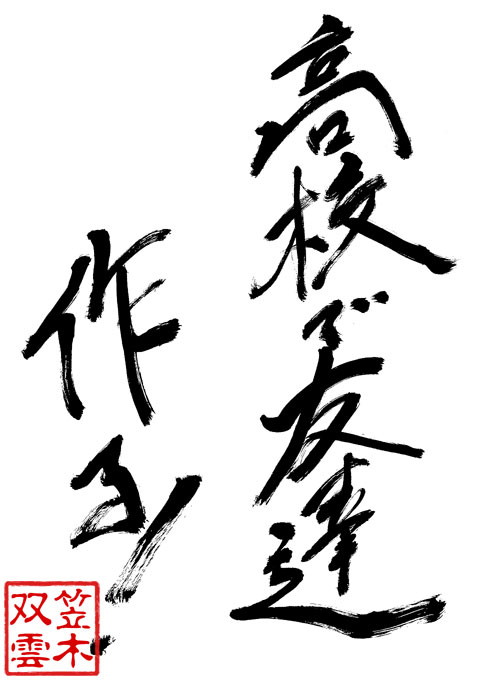 高校で友達
作る!
笠木
双雲